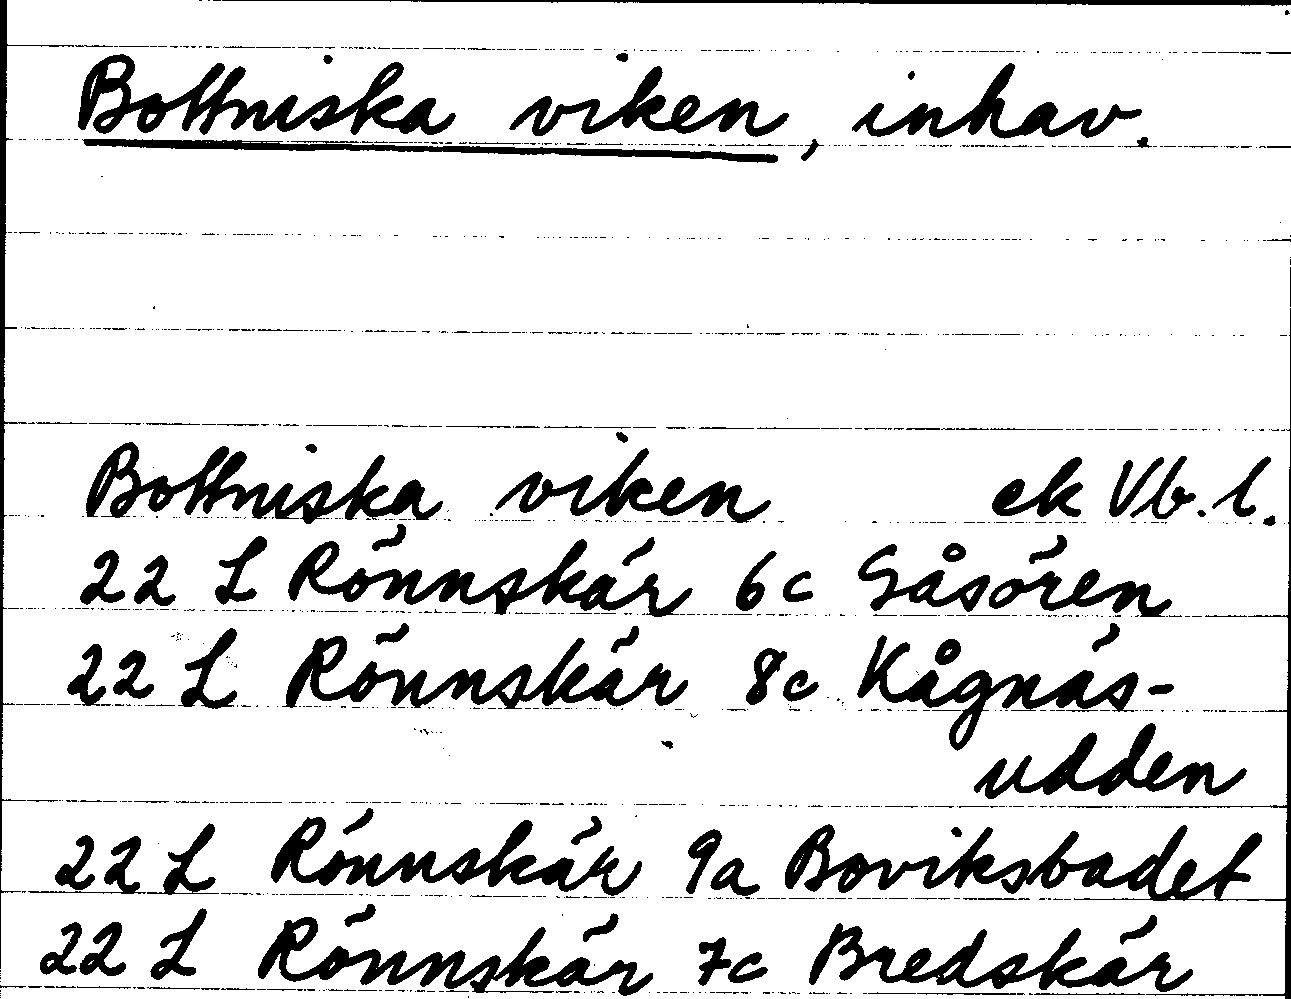 Bottniska viken, inhav.
Bottniska viken ek Vb. l.
22 L Rönnskär 6c Gåsören
22 L Rönnskär 8c Kågnäs-
udden
22 L Rönnskär 9a Boviksbadet
22 L Rönnskär 7c Bredskär